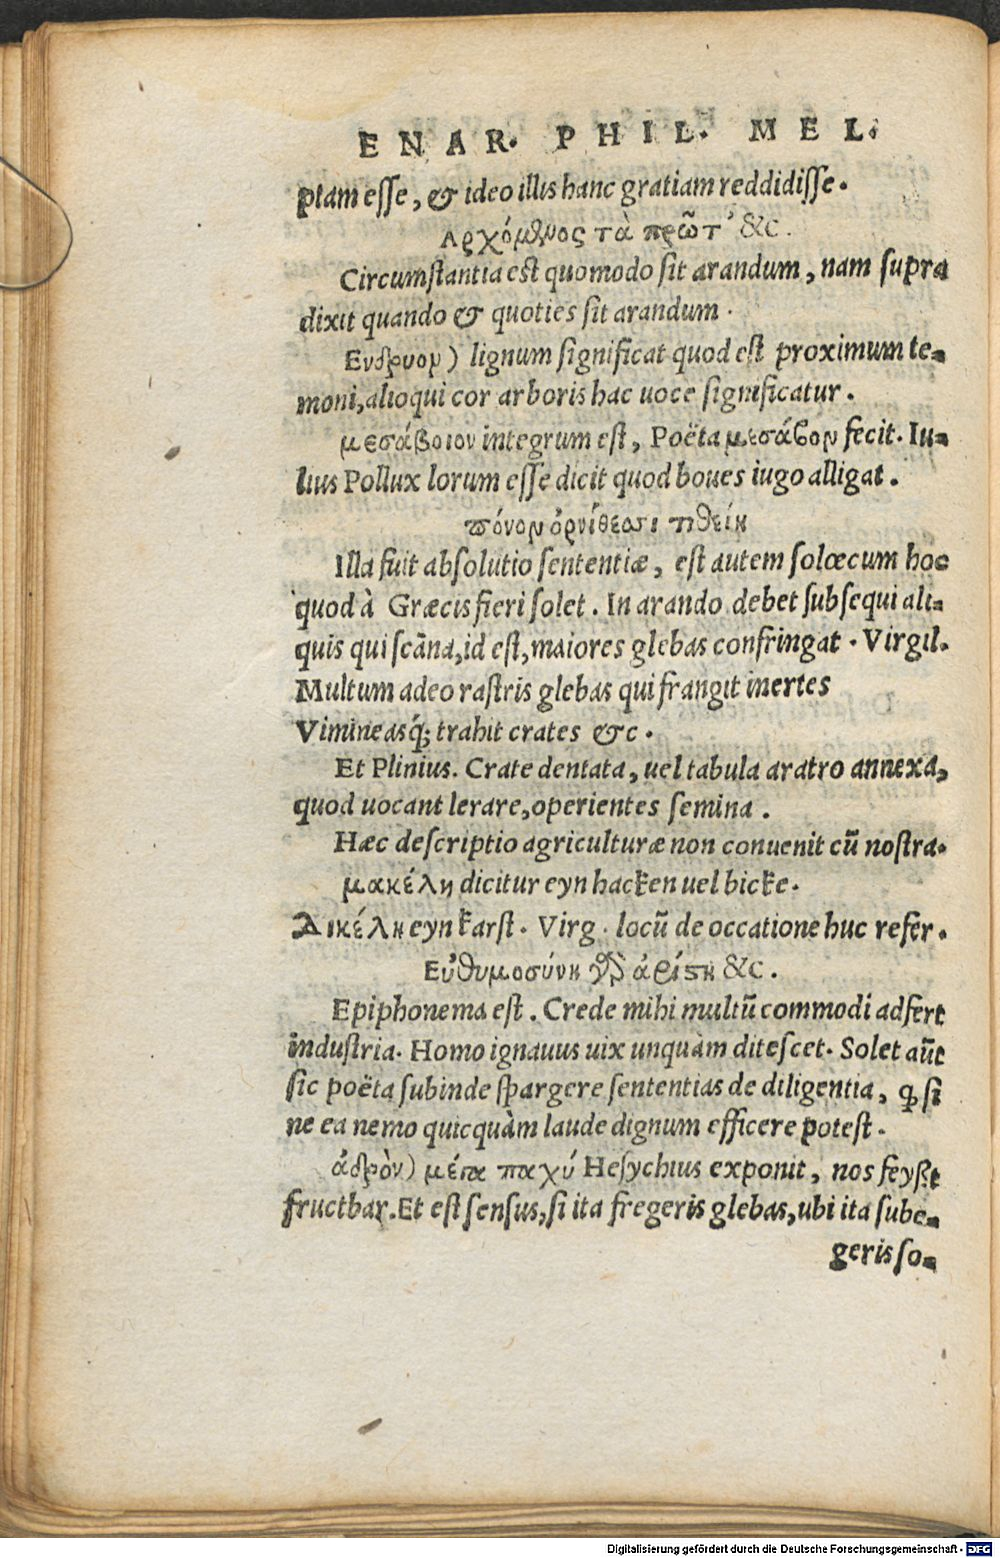 ENAR. PHIL. MEL.
ptam esse, & ideo illis hanc gratiam reddidisse.
Αρχόμενος τὰ πρῶτ’ &c.
Circumstantia est quomodo sit arandum, nam supra
dixit quando & quoties sit arandum.
Ενδρυον) lignum significat quod est proximum te-
moni, alioqui cor arboris hac uoce significatur.
μεσάβοιον integrum est, Poëta μεσάβον fecit. Iu-
lius Pollux lorum esse dicit quod boues iugo alligat.
πόνον ὀρνίθεσσι τιθείη
Illa fuit absolutio sententiæ, est autem solœcum hoc
quod à Græcis fieri solet. In arando debet subsequi ali-
quis qui scāna, id est, maiores glebas confringat. Virgil.
Multum adeo rastris glebas qui frangit inertes
Vimineasq; trahit crates &c.
Et Plinius. Crate dentata, uel tabula aratro annexa,
quod uocant lerare, operientes semina.
Hæc descriptio agriculturæ non conuenit cū nostra.
μακέλη dicitur eyn hacken uel bicke.
Δικέλη eyn karst. Virg. locū de occatione huc refer.
Εὐθυμοσύνη γὸ ἀρίστη &c.
Epiphonema est. Crede mihi multū commodi adfert
industria. Homo ignauus uix unquàm ditescet. Solet aūt
sic poëta subinde spargere sententias de diligentia, ꝙ si
ne ea nemo quicquàm laude dignum efficere potest.
ἁδρὸν) μέγα παχύ Hesychius exponit, nos feyßt
fructbar. Et est sensus, si ita fregeris glebas, ubi ita sube-
geris so-
Digitalisierung gefördert durch die Deutsche Forschungsgemeinschaft - DFG